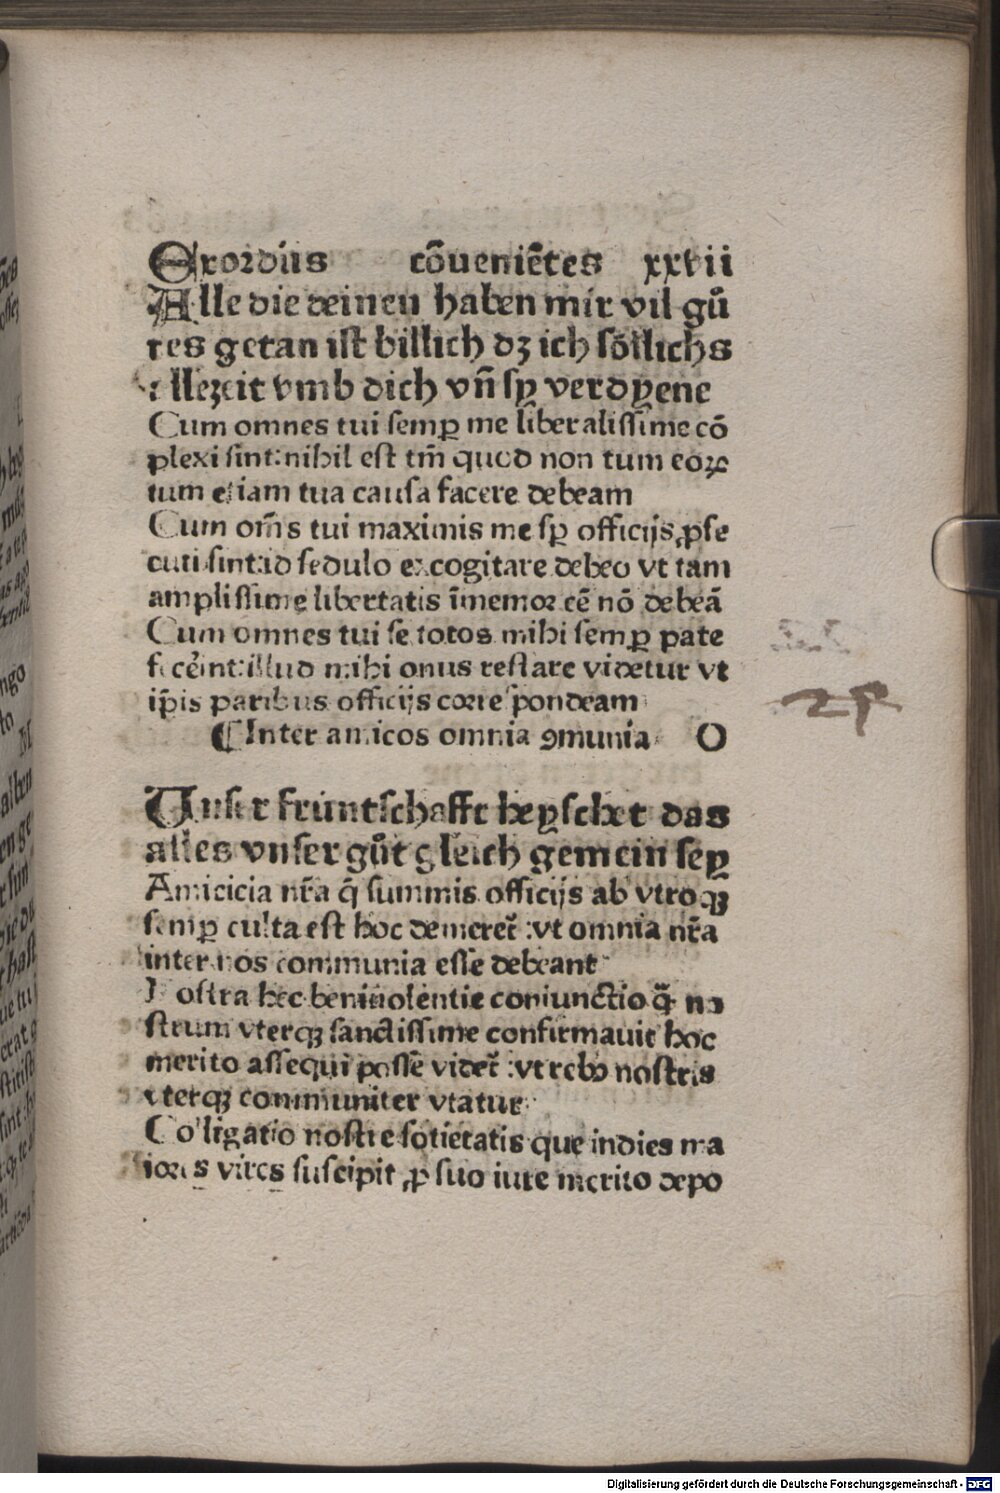 Exordiis cōueniētes xxvii
Alle die deinen haben mir vil gůtes
res getan ist billich dꝫ ich sőllichs
allezeit vmb dich vn̄ sy verdyene
Cum omnes tui semꝑ me liberalissime cō
plexi sint: nihil est tm̄ quod non tum eoꝝ
tum etiam tua causa facere debeam
Cum om̄s tui maximis me sꝑ officijs ꝓse
cuti sint: id sedulo excogitare debeo vt tam
amplissime libertatis īmemor eē nō debeā
Cum omnes tui se totos mihi semꝑ pate
fecēint: illud mihi onus restare videtur vt
ip̄is paribus officijs correspondeam
¶ Inter amicos omnia ꝯmunia O
Unser fruntschafft heyschet das
alles vnser gůt gleich gemein sey
Amicicia nr̄a q̄ summis officijs ab vtroqꝫ
semꝑ culta est hoc demeret̄ : vt omnia nr̄a
inter nos communia esse debeant
Nostra hec beniuolentie coniunctio q̄ no
strum vterqꝫ sanctissime confirmauit hoc
merito assequi posse videt̄ : vt rebꝰ nostris
vterqꝫ communiter vtatur
Colligatio nostre sotietatis que indies ma
iores vires suscipit ꝓ suo iure merito depo
29
Digitalisierung gefördert durch die Deutsche Forschungsgemeinschaft - DFG